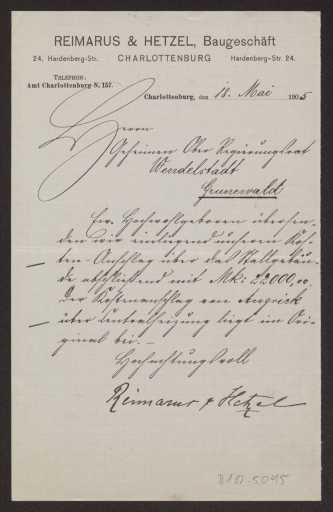 REIMARUS & HETZEL, Baugeschäft
24, Hardenberg-Str. CHARLOTTENBURG Hardenberg-Str. 24.
TELEPHON:
Amt Charlottenburg N. 157.
Charlottenburg, den 18. Mai 1905
Herrn
Geheimen Ober Regierungsrat
Wendelstadt
Grunewald
Ew. Hochwohlgeboren übersen-
den wir einliegend unseren Kos-
ten-Anschlag über das Stallgebäu-
de abschließend mit Mk: 22000,00
Der Kostenanschlag von
über Centralheizung liegt im Ori-
ginal bei. —
Hochachtungsvoll
Reimarus & Hetzel